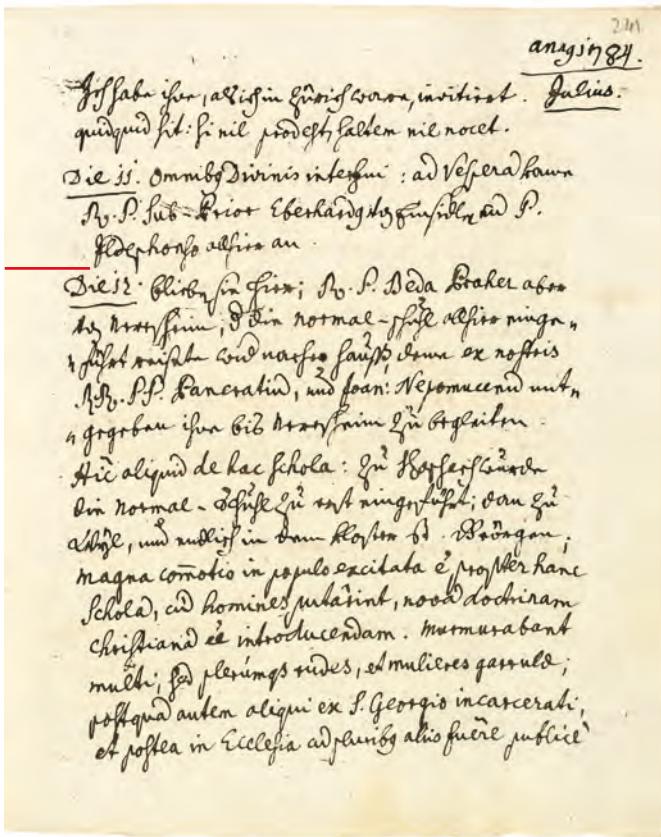 241
anni 1784.
Julius.
Ich habe ihne, als ich in Zürich ware, invitiert.
quidquid sit: si nil prodest, saltem nil nocet.
Die 11. Omnibg Divinis interfui: ad Vesperā kame
R. P. Sub-Prior Eberhardg vō Einsidlen und P.
Ildephonso allhier an.
Die 12. bliebe sie hier; R. P. Beda Pracher aber
vō Neresheim, d die normal-schuhl allhier einge„
„führt reisete wid nacher hauß, deme ex nostris
RR. PP. Pancratiū, und Joan: Nepomucenū mit„
„gegeben ihne bis Neresheim zu begleiten.
Hic aliquid de hac schola: Zu Rorschach wurde
die normal-Schuhl zu erst eingeführt; dan zu
Wÿl, und endlich in dem kloster St. Geörgen;
magna com̄otio in populo excitata ē propter hanc
Scholā, cū homines putārint, novā doctrinam
christianā ēe introducendam. murmurabant
multi; sed plerumqs rudes, et mulieres garrulæ;
postquā autem aliqui ex S. Georgio incarcerati,
et postea in Ecclesia cū pluribg aliis fuēre publicē